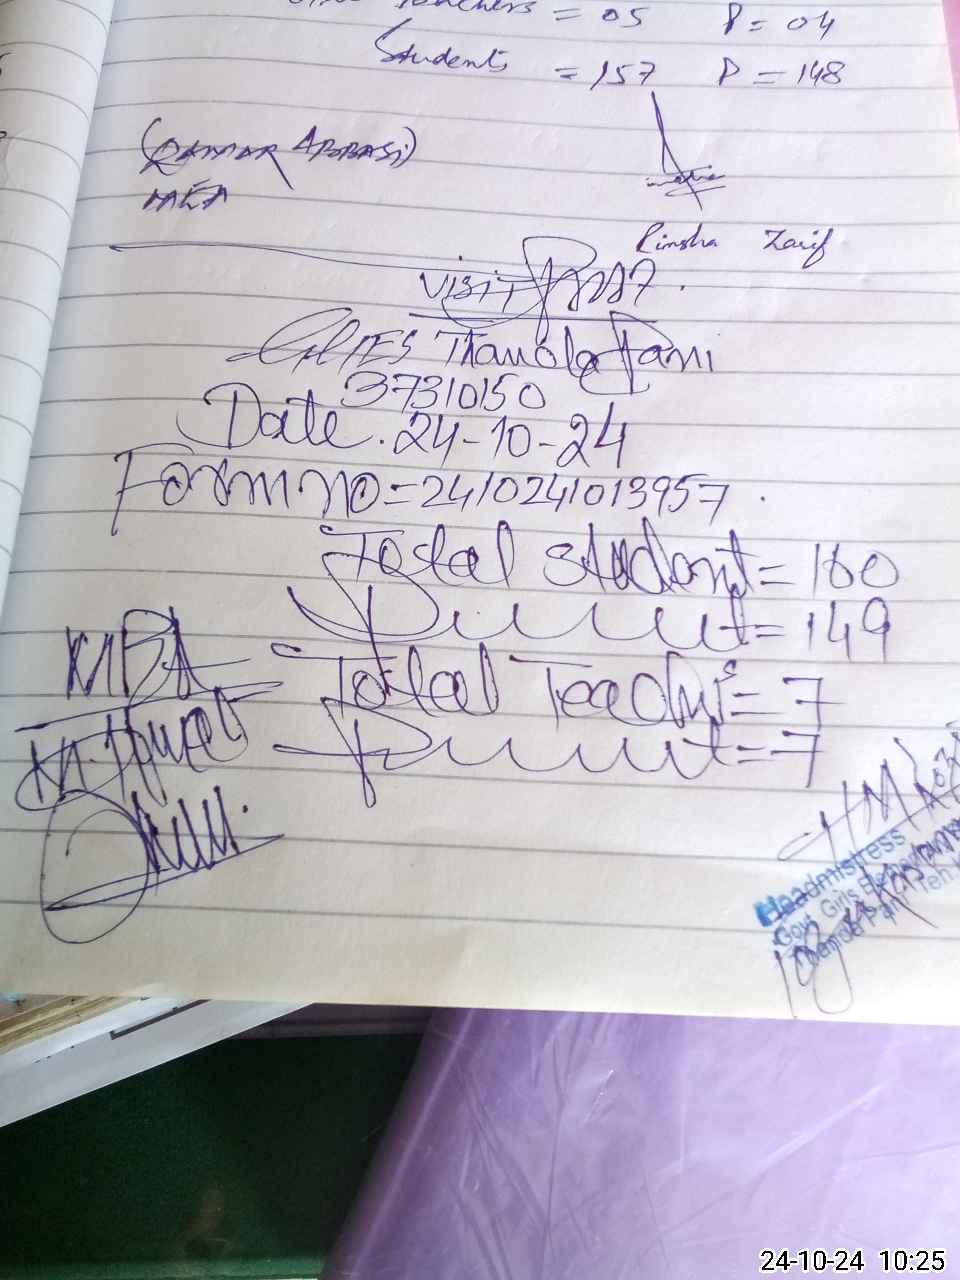 Teachers = 05 P = 04
Students = 157 P = 148
(QAMAR ABBASi)
MEA
Rimsha Zarif
Visit
GGES Thanda Pani
37310150
Date. 24-10-24
Form no = 2410241013957.
Total student = 160
Present = 149
Total Teacher = 7
Present = 7
HM
Headmistress
Govt. Girls
Thanda Pani Teh
24-10-24 10:25